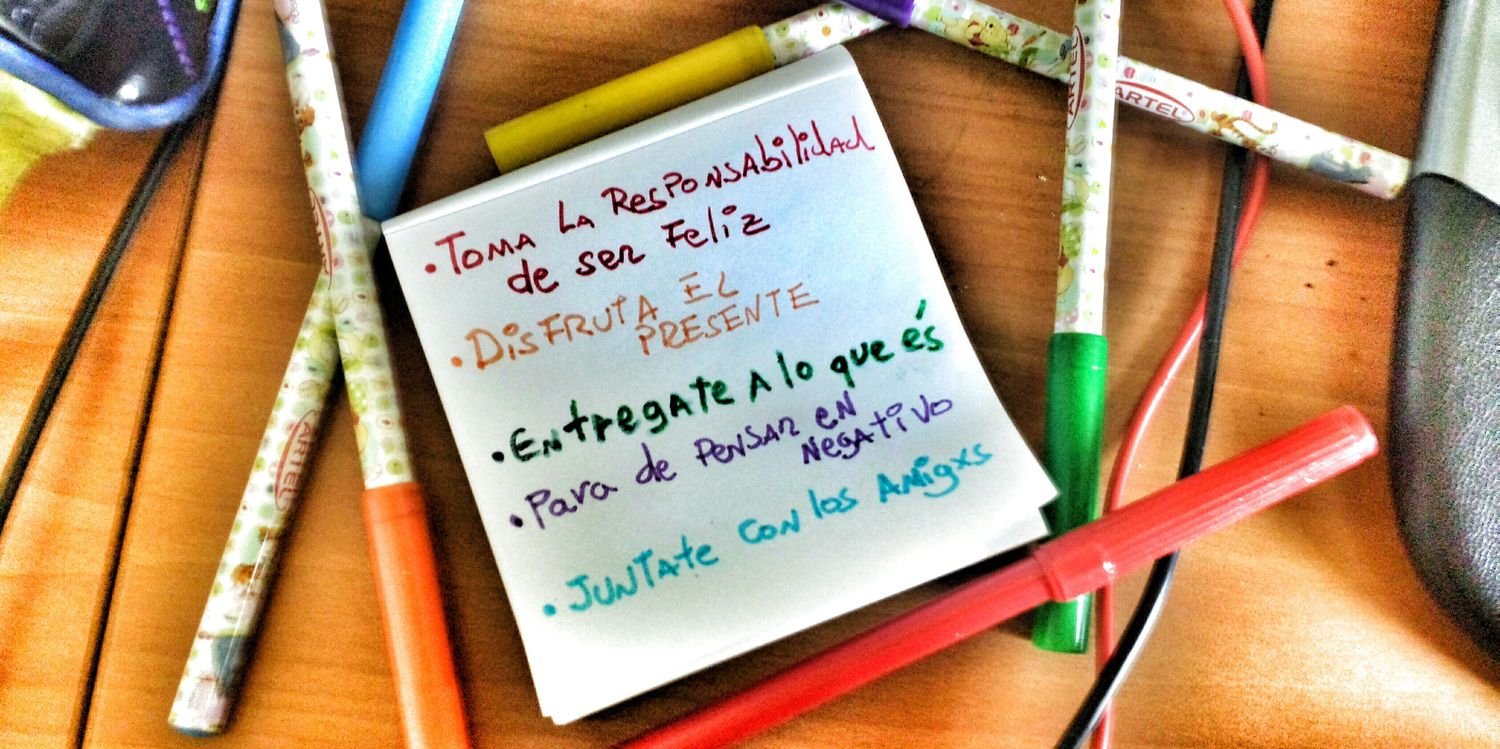 • Toma la Responsabilidad
de ser Feliz
• DISFRUTA EL
PRESENTE
• Entregate a lo que és
• Para de Pensar en
Negativo
• Juntate con los Amigxs
ARTEL
ARTEL
ARTEL
ARTEL